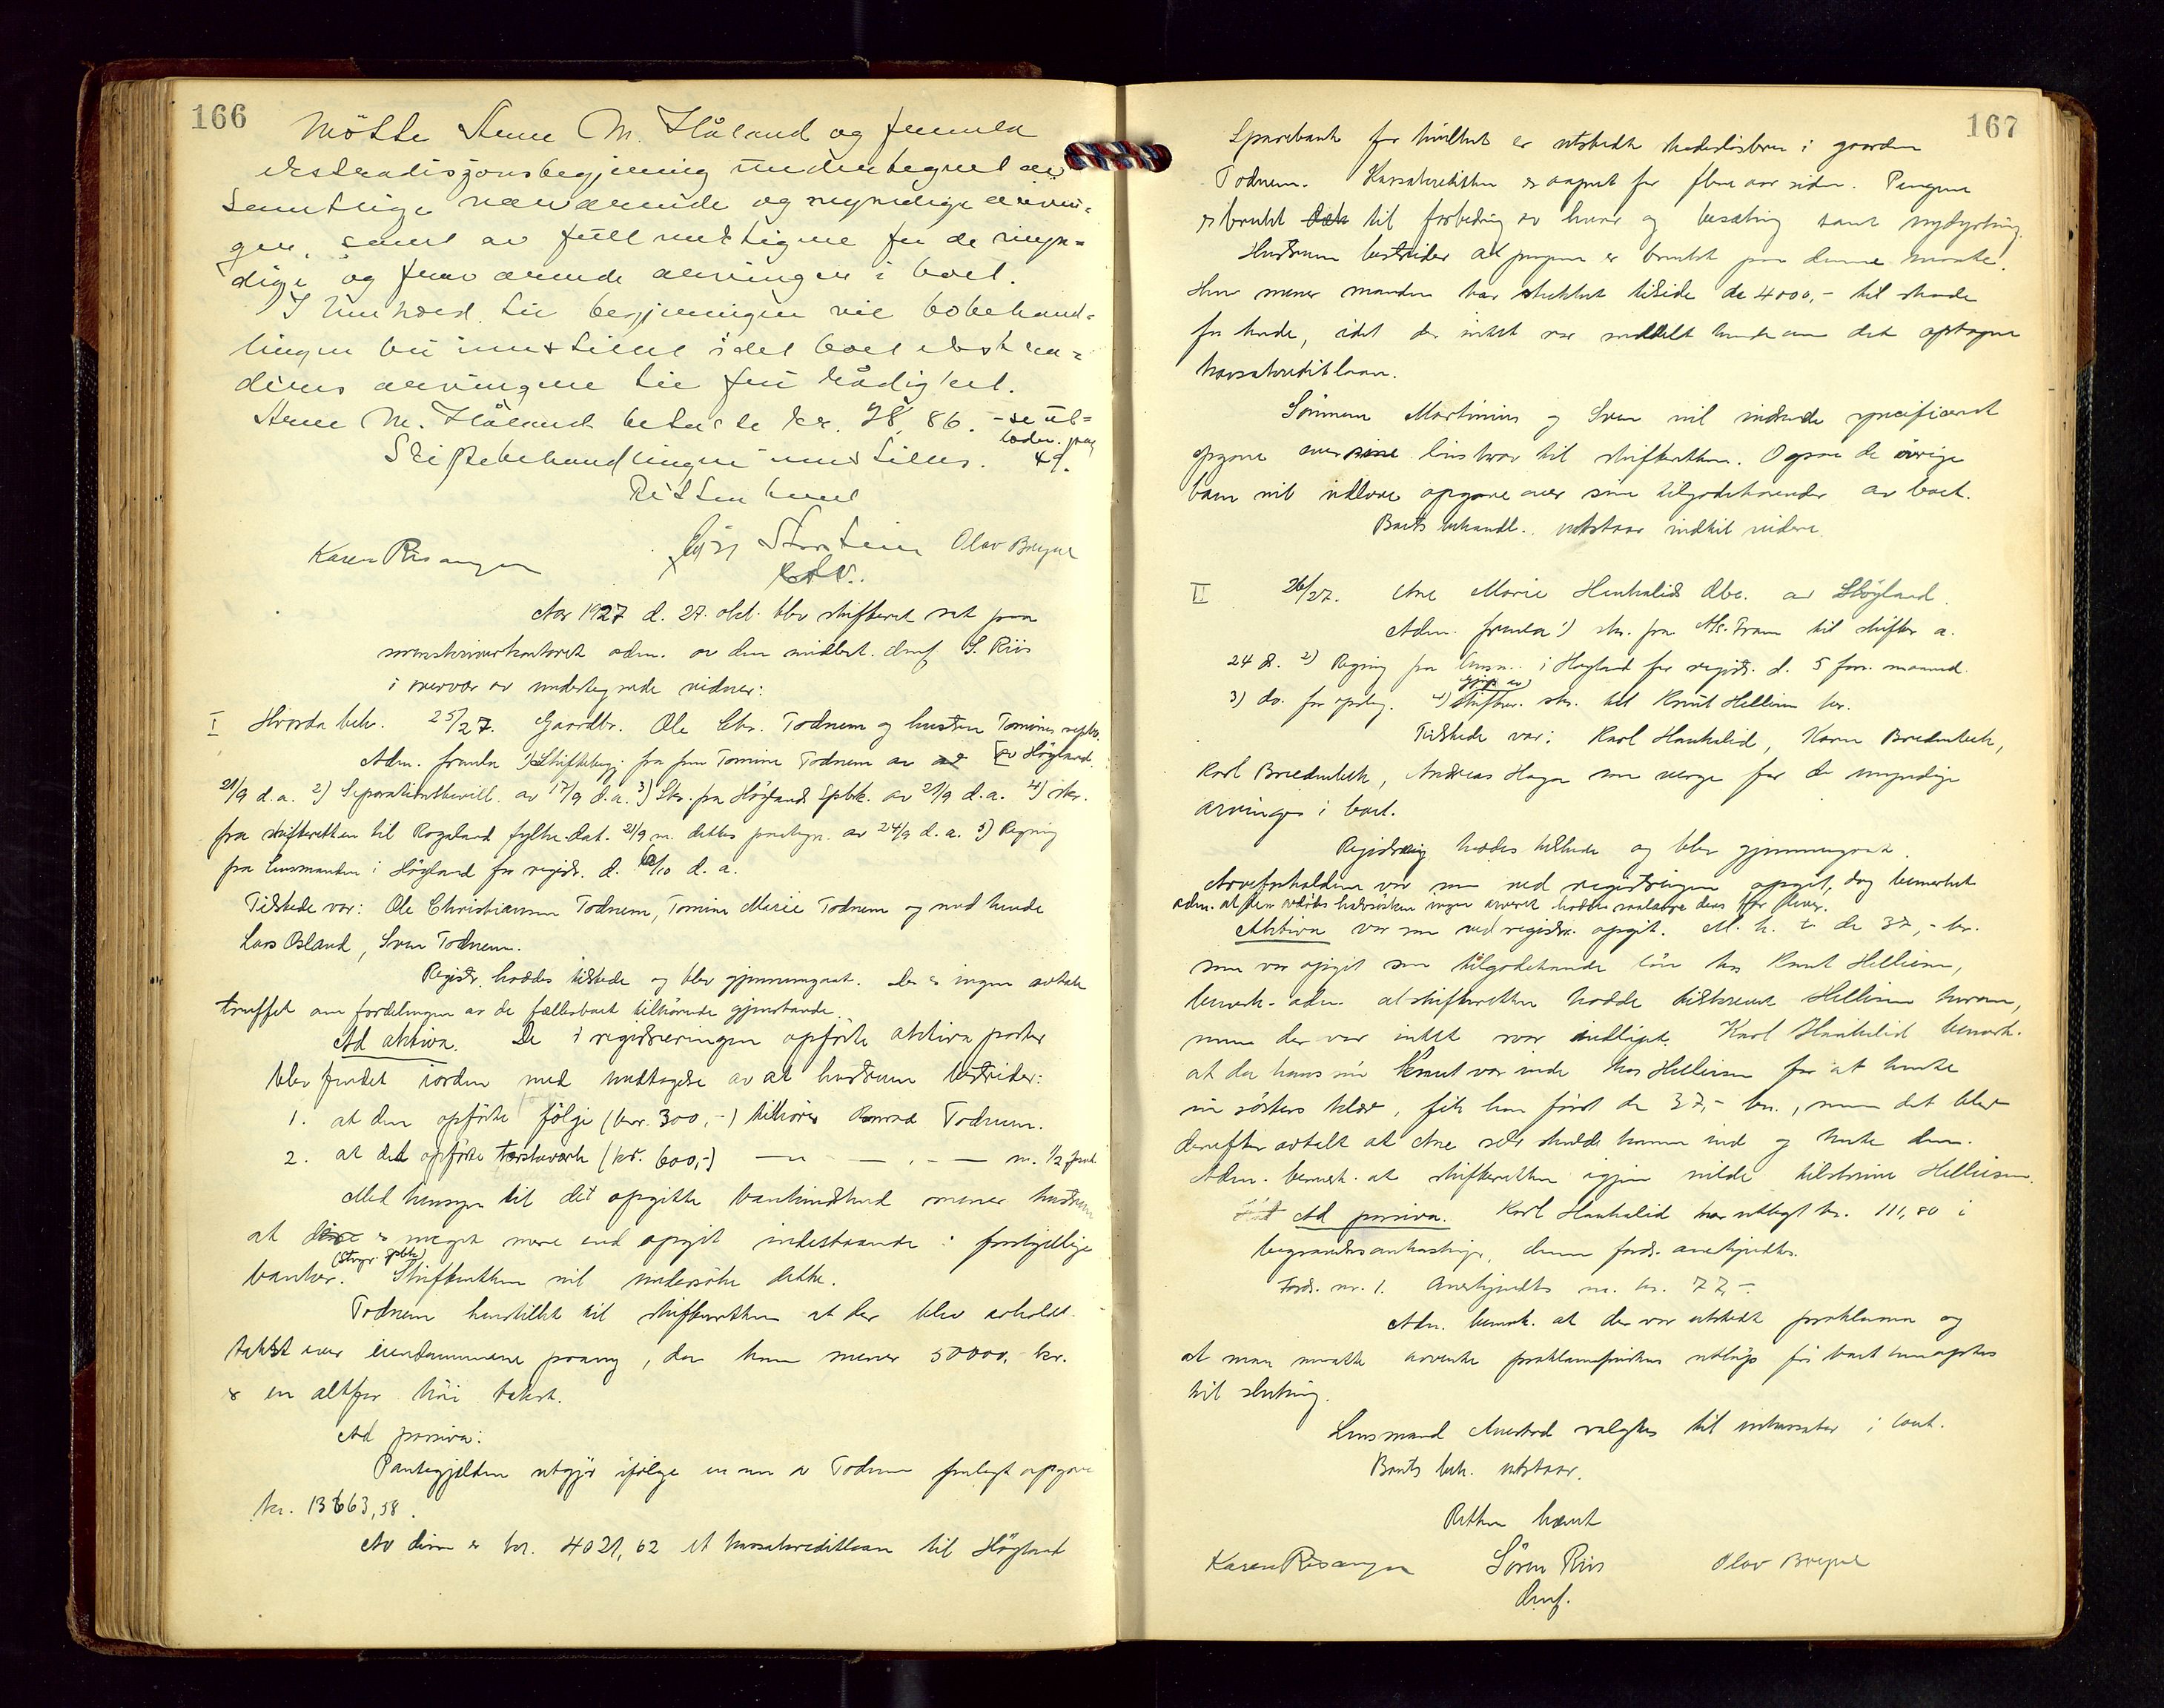 166
Mötte Arne M. Håland og fremla
ekstradisjonsbegjæring undertegnet av
samtlige nærværende og myndige arvin-
gen, samt av fullmektigene for de umyn-
dige og fraværende arvinger i boet.
I henhold til begjæringen vil bobehand-
lingen bli innstillet idet boet ekstra-
deres arvingene til fri rådighet.
Arne M. Håland betalte kr. 78,86. - se ut-
loddn. pag
49.
Skiftebehandlingen innstilles.
Retten hevet
Karen Risanger Storstein Olav Bryne
Aar 1927 d. 27. okt. blev skifteret sat paa
sorenskriverkontoret adm. av den midlert. dmf. S. Riis
i overvær av undertegnede vidner:
I Hvorda beh. 25/27. Gaardbr. Ole Chr. Todnem og hustru Tomines separ.
Adm. fremla 1) Skiftebegj. fra fru Tomine Todnem av [av Höyland.
21/9 d.a. 2) Separationsbevill. av 17/9 d.a. 3) Skr. fra Höylands Spbk. av 21/9 d.a. 4) skr.
fra skifteretten til Rogaland fylke dat. 21/9 m. dettes paategn. av 24/9 d.a. 5) Regning
fra lensmanden i Höyland for registr. d. /10 d. a.
Tilstede var: Ole Christiansen Todnem, Tomine Marie Todnem og med hende
Lars Osland, Sven Todnem.
Registr. haddes tilstede og blev gjennemgaat. Der er ingen avtale
truffet om fordelingen av de fællesboet tilhörende gjenstande.
Ad aktiva. De i registreringen opförte aktiva poster
blev fundet iorden med undtagelse av at hustruen bestrider:
1. at den opförte fölge (kr. 300,-) tilhörer Konrad Todnem.
2. at det opförte tærskeverk (kr. 600,-) — " — . - — m. 1/2 part
Med hensyn til det opgitte bankindskud mener hustruen
at der er meget mere end opgit indestaaende i forskjellige
banker. Skifteretten vil undersöke dette.
Todnem henstillet til skifteretten at der blev avholdt
takst over eiendommene paany, da han mener 50000,- kr.
er en altfor höi takst.
Ad passiva:
Pantegjælden utgjör ifölge en nu av Todnem fremlagt opgave
kr. 13663,58.
Av disse er kr. 4021,62 et kassakreditlaan til Höyland
167
Sparebank for hvilket er utstedt skadeslösbrev i gaarden
Todnem. Kassakreditten er aapnet for flere aar siden. Pengene
er brukt til forbedring av huser og besætning samt nydyrkning.
Hustruen bestrider at pengene er brukt paa denne maate.
Hun mener manden har stukket tilside de 4000,- til skade
for hende, idet der intet var meddelt hende om det optagne
kassakreditlaan.
Sönnene Martinius og Sven vil indsende specificeret
opgave over sine löns krav til skifteretten. Ogsaa de övrige
barn vil indlevere opgave over sine tilgodehavender av boet.
Boets behandl. utstaar indtil videre.
II 26/27. Ane Marie Haukalids dbo. av Höyland.
Adm. fremla 1) skr. fra A/s. Fram til skifter. a.
24 d. 2) Regning fra lensm. i Höyland for registr. d. 5 forr. maaned.
3) do. for oplag. 4) gjenp. av skifter. skr. til Knut Hellisen her.
Tilstede var: Karl Haukalid, Karen Bredenbeck,
Karl Bredenbeck, Andreas Haga som verge for de umyndige
arvinger i boet.
Registrering haddes tilstede og blev gjennemgaat.
Arveforholdene var som ved registreringen opgit, dog bemerket
adm. at den avdödes halvsösken ingen arveret hadde saalænge dens far lever.
Aktiva var som ved registr. opgit. M. h. t. de 37,- kr.
som var opgit som tilgodehavende lön hos Knut Hellisen,
bemerk. adm. at skifteretten hadde tilskrevet Hellisen herom,
men der var intet svar indlöpet. Karl Haukalid bemerk.
at da hans sön Knut var inde hos Hellisen for at hente
sin sösters klær, fik han först de 37,- kr., men det blev
derefter avtalt at Ane selv skulde komme ind og hente dem.
Adm. bemerk. at skifteretten igjen vilde tilskrive Hellisen.
Ad passiva. Karl Haukalid har utlagt kr. 111,80 i
begravelsesomkostninger, denne fordr. anerkjendtes.
Fordr. nr. 1. Anerkjendtes m. kr. 77,-
Adm. bemerk. at der var utstedt proklama og
at man maatte avvente proklamafristens utlöp för boet kan optas
til slutning.
Lensmand Auestad valgtes til inkassator i boet.
Boets beh. utstaar.
Retten hævet
Karen Risanger Sören Riis Olav Bryne
dmf.